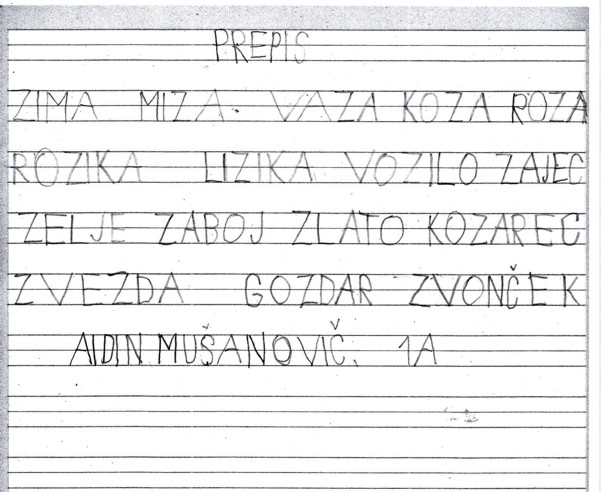 PREPIS
ZIMA MIZA. VAZA KOZA ROZA
ROZIKA LIZIKA VOZILO ZAJEC
ZELJE ZABOJ ZLATO KOZAREC
ZVEZDA GOZDAR ZVONČEK
AIDIN MUŠANOVIČ. 1A